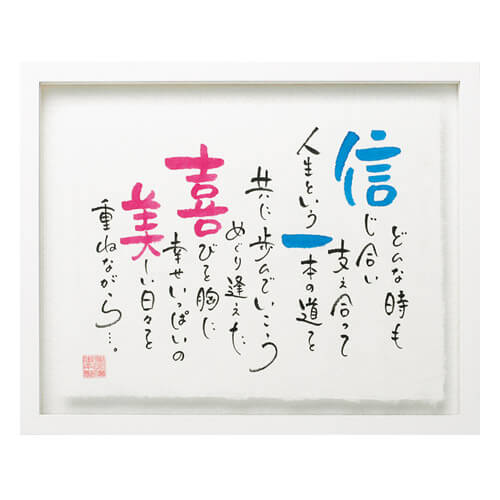 どんな時も
信じ合い
支え合って
人生という
一本の道を
共に歩んでいこう
めぐり逢えた
喜びを胸に
幸せいっぱいの
美しい日々を
重ねながら…。